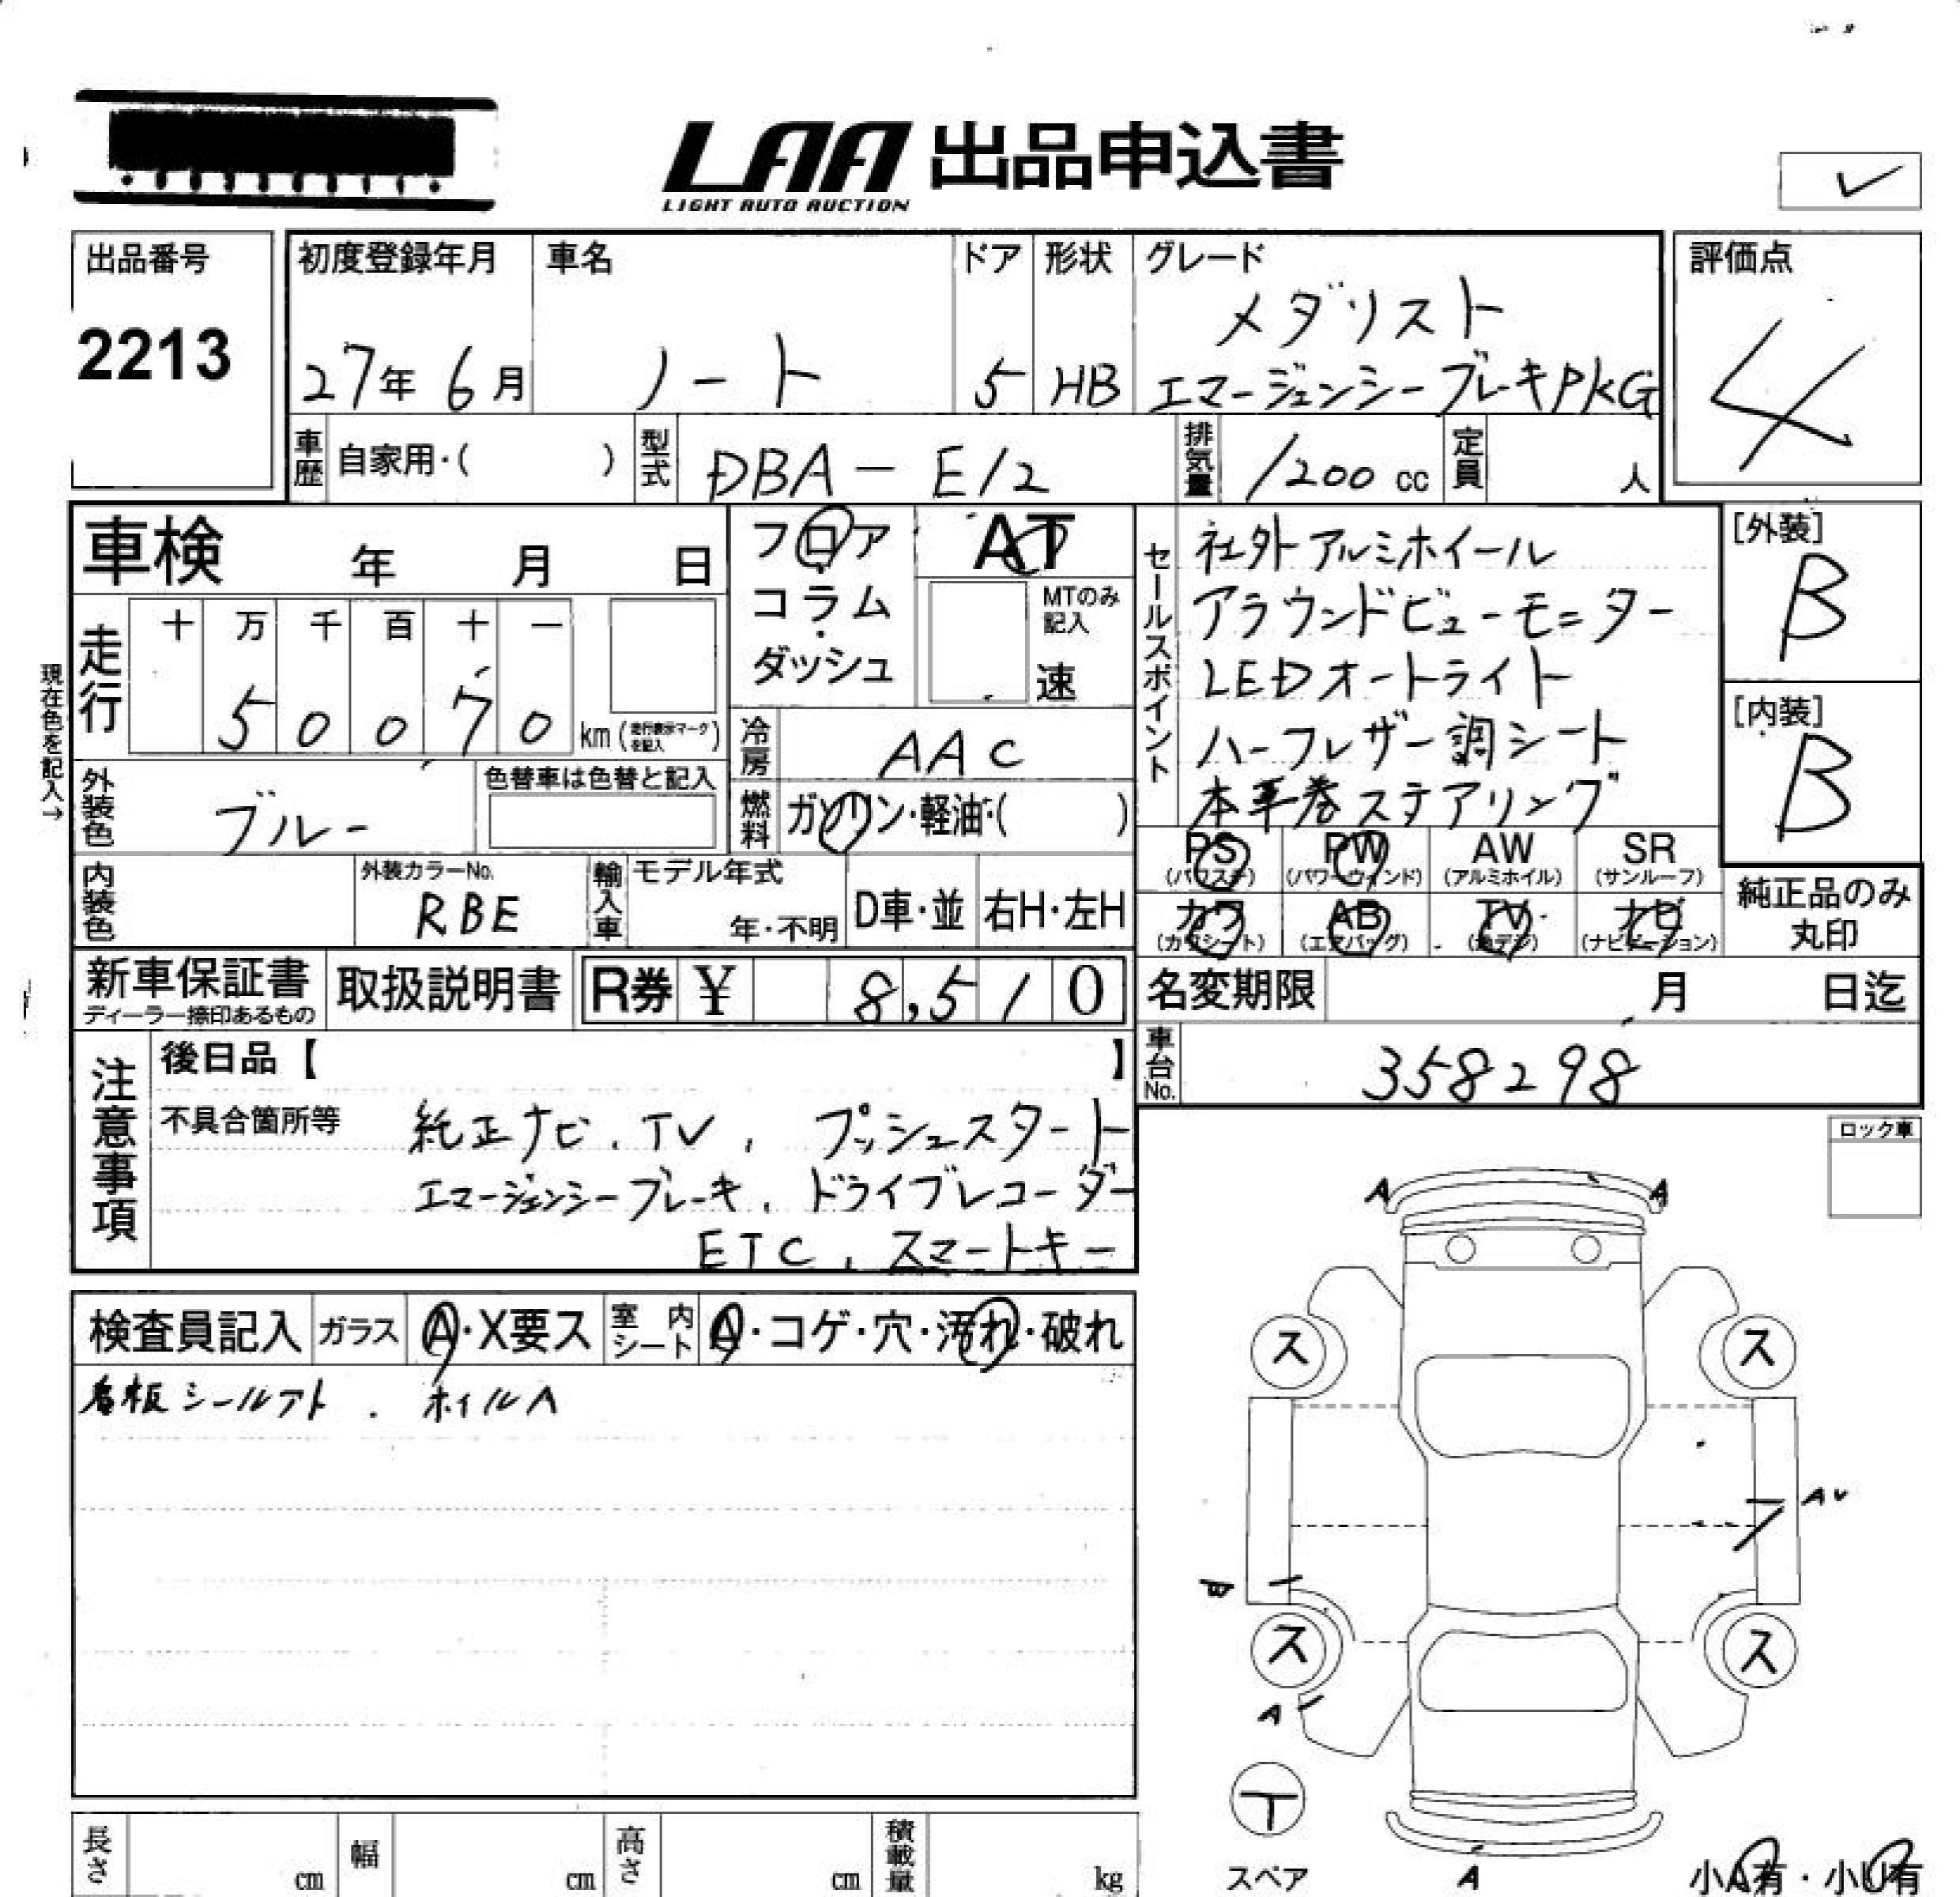 LAA 出品申込書
LIGHT AUTO AUCTION
出品番号
2213
初度登録年月
27年 6月
車名
ノート
ドア
5
形状
HB
グレード
メダリスト
エマージェンシーブレーキPKG
評価点
4
車歴 自家用・( )
型式 DBA-E12
排気量 1200 cc
定員 人
車検 年 月 日
フロア
コラム
ダッシュ
AT
MTのみ
記入
速
現在色を記入→
走行
十 万 千 百 十 一
5 0 0 7 0 km (走行表示マークを記入)
冷房 AAC
外装色 ブルー
色替車は色替と記入
燃料 ガソリン・軽油・( )
内装色
外装カラーNo.
RBE
輸入車
モデル年式
年・不明
D車・並
右H・左H
セールスポイント
社外アルミホイール
アラウンドビューモニター
LEDオートライト
ハーフレザー調シート
本革巻ステアリング
[外装]
B
[内装]
B
PS
(パワステ)
PW
(パワーウィンド)
AW
(アルミホイル)
SR
(サンルーフ)
カワ
(カワシート)
AB
(エアバッグ)
TV
(地デジ)
ナビ
(ナビゲーション)
純正品のみ
丸印
新車保証書
ディーラー捺印あるもの
取扱説明書
R券 ¥ 8,510
名変期限 月 日迄
車台No. 358298
注意事項
後日品【 】
不具合箇所等
純正ナビ、TV、プッシュスタート
エマージェンシーブレーキ、ドライブレコーダー
ETC、スマートキー
ロック車
検査員記入
ガラス Ⓐ・X要ス
室内シート Ⓐ・コゲ・穴・汚れ・破れ
看板シールアト . ホイルA
A A
ス ス
AU
ス ス
A
丁
スペア
A
小A有・小U有
長さ cm
幅 cm
高さ cm
積載量 kg